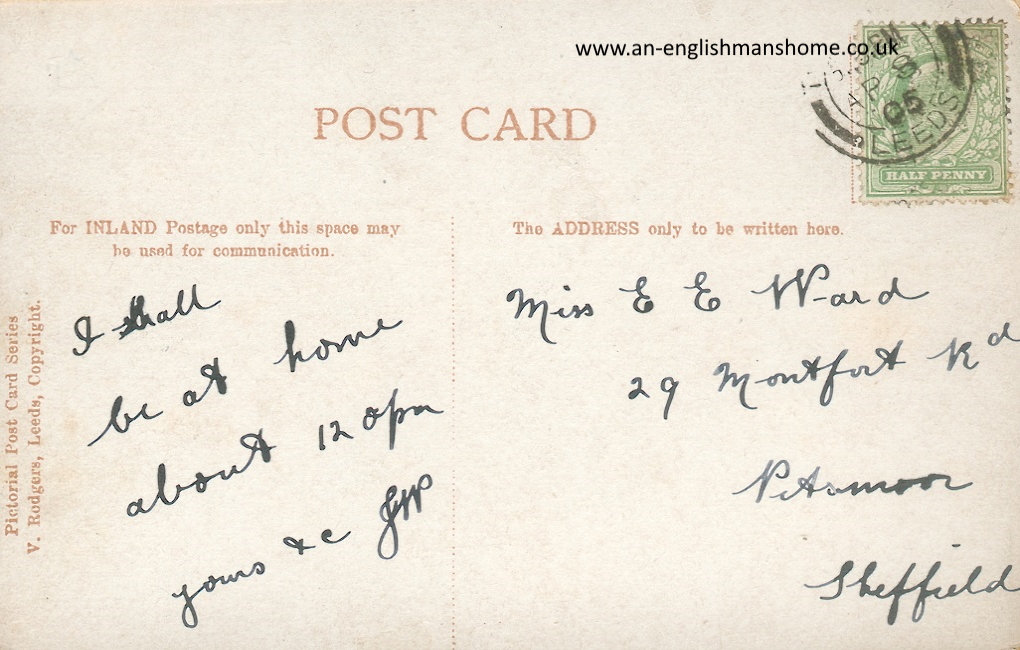 www.an-englishmanshome.co.uk
AP 8
05
LEEDS
HALF PENNY
POST CARD
For INLAND Postage only this space may
be used for communication.
The ADDRESS only to be written here.
Pictorial Post Card Series
V. Rodgers, Leeds, Copyright.
I shall
be at home
about 12 opm
yours &c JW
Miss E E Ward
29 Montfort Rd
Pitsmoor
Sheffield